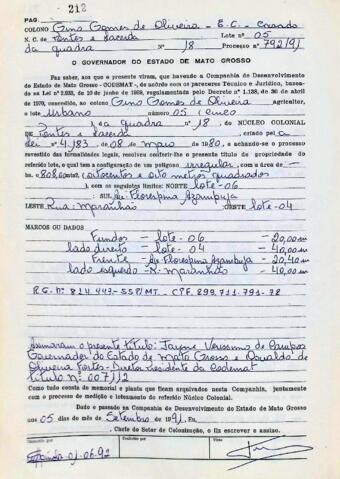 PAG. 212
COLONO Gino Gomes de Oliveira - E.C. - Casado
N. C. de Pontes e Lacerda Lote nº 05
da quadra Nº 18 Processo nº 792/91
O GOVERNADOR DO ESTADO DE MATO GROSSO
Faz saber, aos que a presente virem, que havendo a Companhia de Desenvolvimento
do Estado de Mato Grosso - CODEMAT -, de acordo com os pareceres Técnico e Jurídico, basea-
da na Lei nº 2.035, de 10 de junho de 1969, regulamentada pelo Decreto nº 1.138, de 30 de
abril de 1970, concedido, ao colono Gino Gomes de Oliveira agricultor,
o lote Urbano nº 05 (cinco
) da quadra nº 18, do NÚCLEO COLONIAL
de Pontes e Lacerda, criado pela
lei nº 4.183, de 08 de maio de 1980, e achando-se o processo
revestido das formalidades legais, resolvem conferir o presente título de propriedade do
referido lote, o qual tem a configuração de um polígono irregular com a área de
808,00 mts2 (oitocentos e oito metros quadrados
), com os seguintes limites: NORTE lote-06
SUL Av. Florespina Azambuja
LESTE Rua: Maranhão OESTE lote-04
MARCOS OU DADOS
Fundos - lote - 06 - 20,00 m
lado direito - lote - 04 - 40,00 m
Frente - Av. Florespina Azambuja - 20,40 m
lado esquerdo - R. Maranhão - 40,00 m
R.G. nº 814.447-SSP/MT. CPF. 899.711.791-78
Assinaram o presente título: Jayme Veríssimo de Campos
Governador do Estado de Mato Grosso e Osvaldo de
Oliveira Fortes - Diretor Presidente da Codemat
título Nº 007112
Como tudo consta do memorial e planta que ficam arquivados nesta Companhia, juntamente
com o processo de medição e loteamento do referido Núcleo Colonial.
Dado e passado na Companhia de Desenvolvimento do Estado de Mato Grosso
aos 05 dias do mês de Setembro de 1991, Eu,
, Chefe do Setor de Colonização, o fiz escrever e assino.
Conferido por
Visto
01-06-92